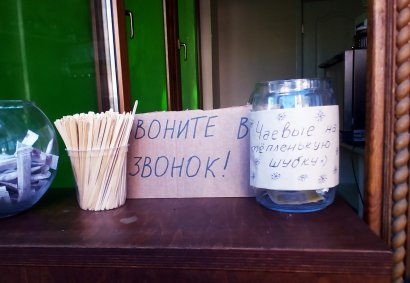 ВОНИТЕ В
ЗВОНОК!
Чаевые на
тёпленькую
шубку:)